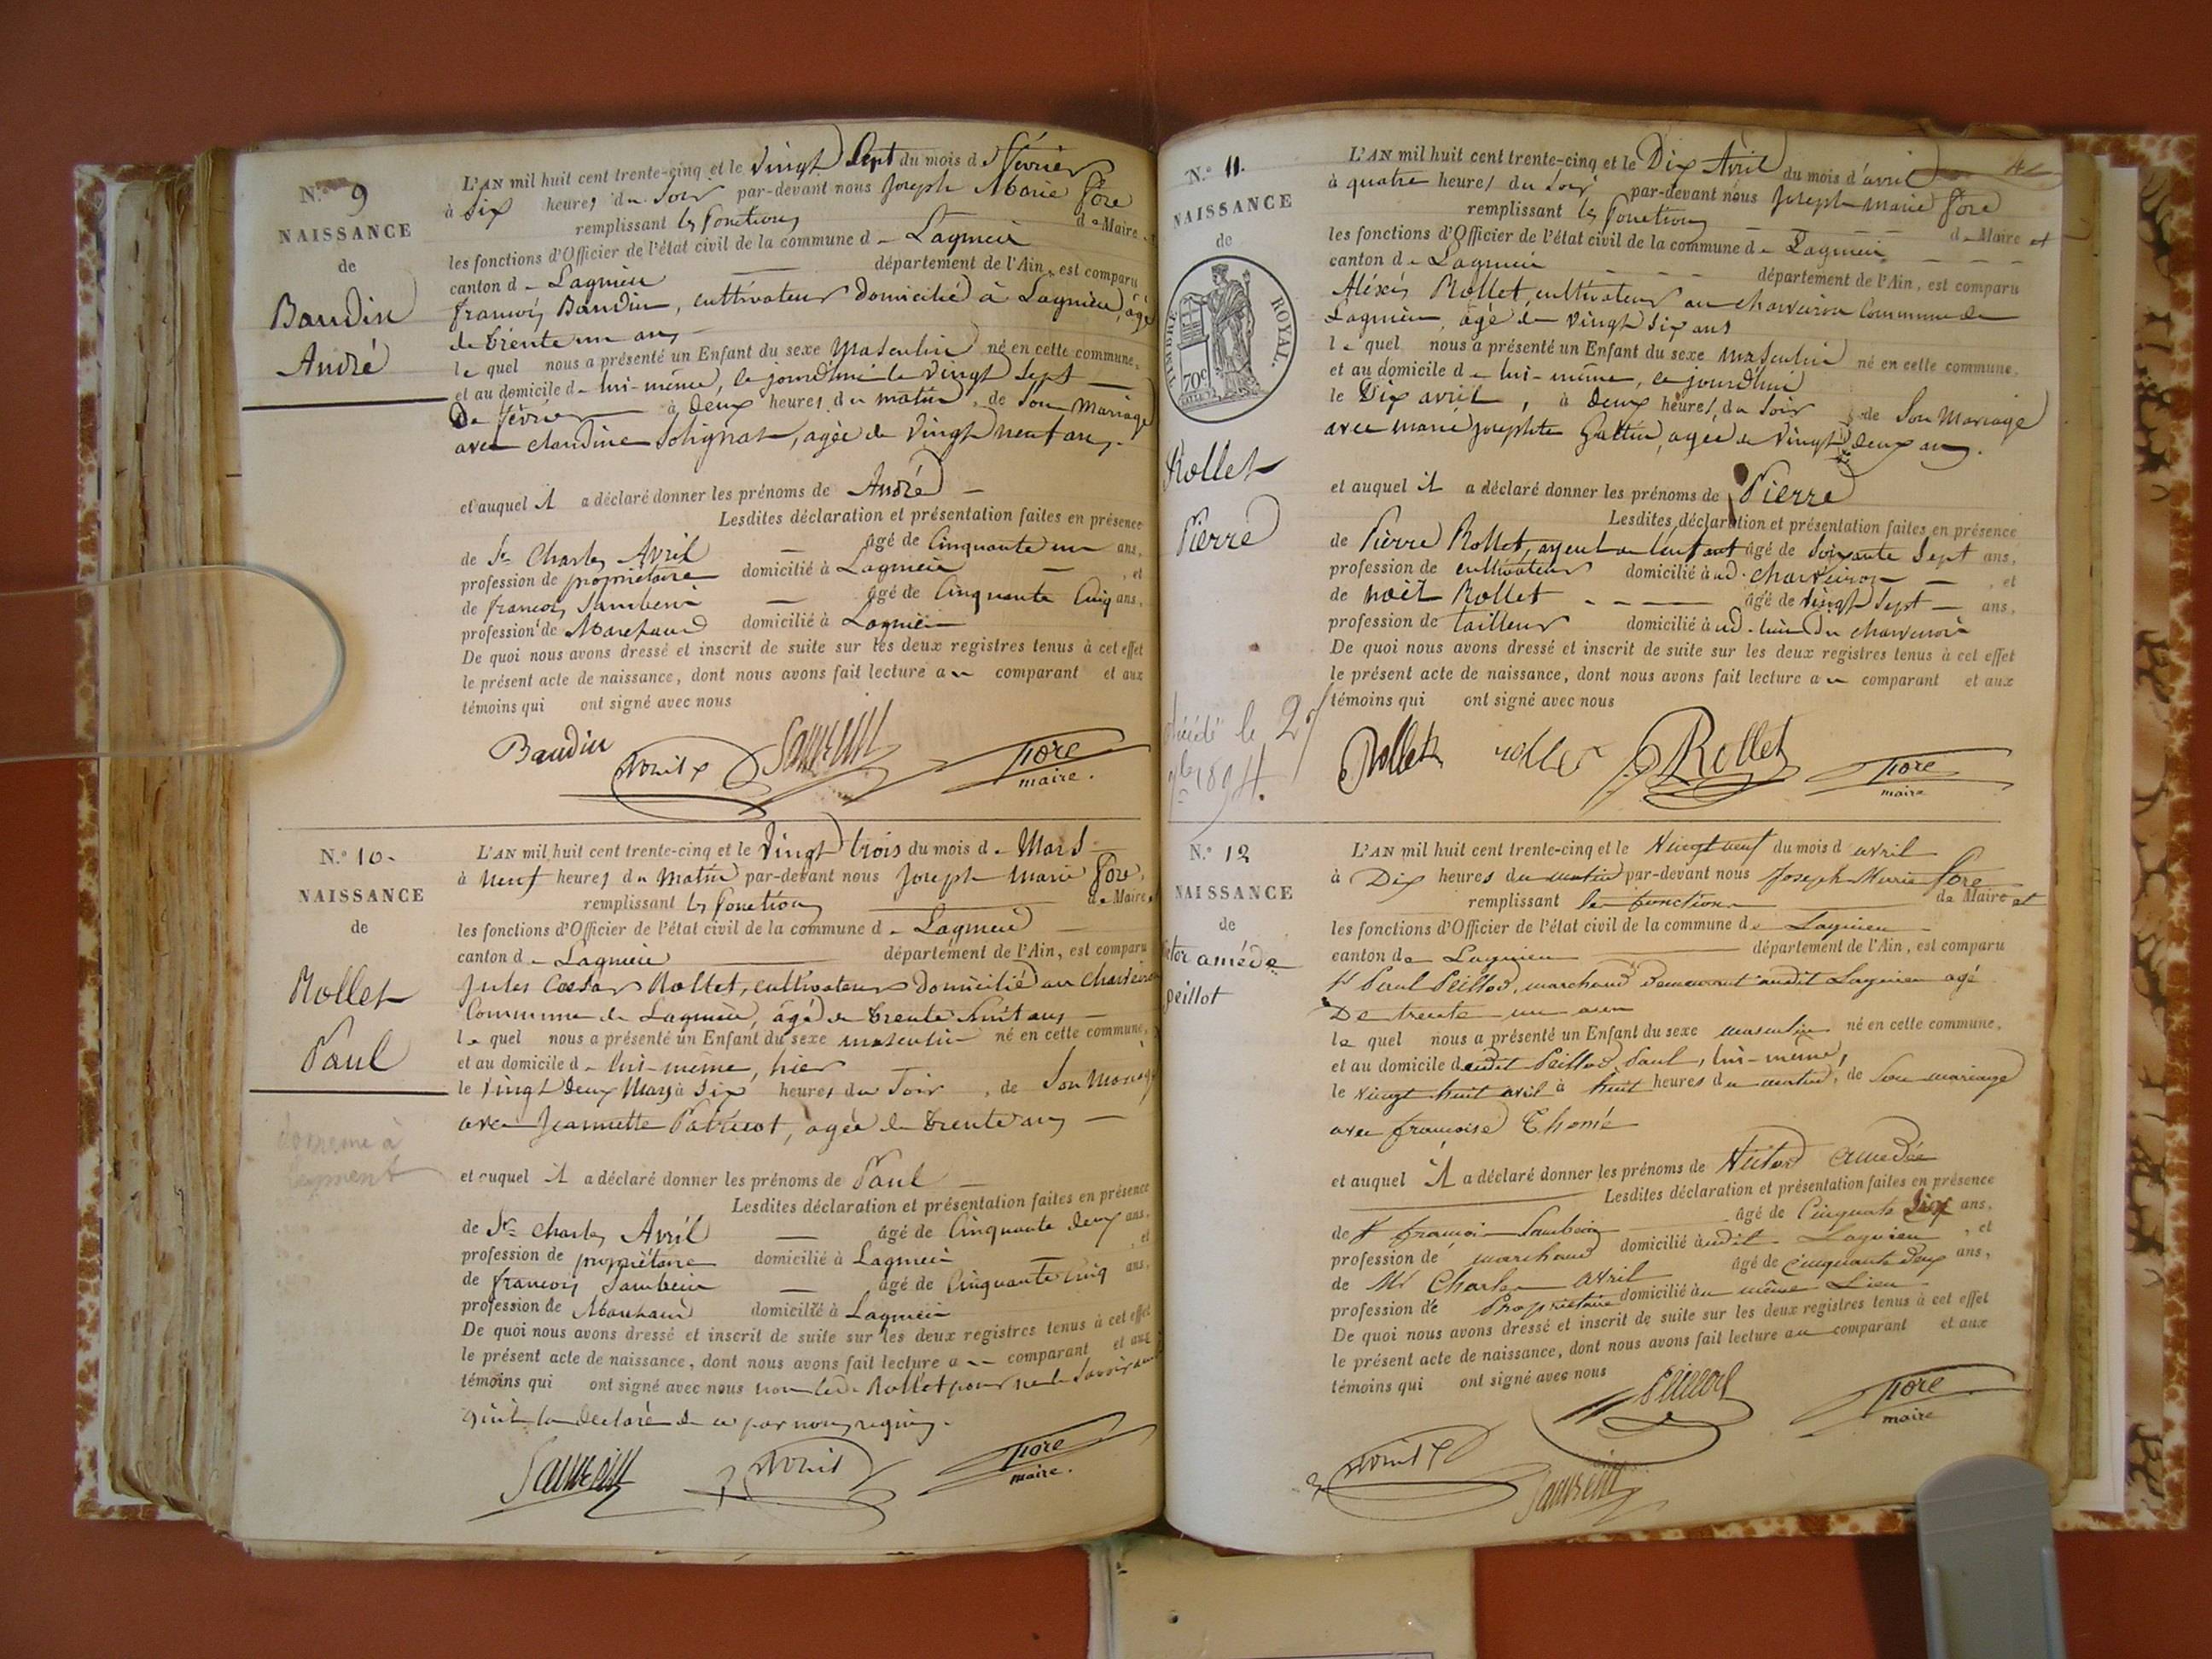 N.º 9
NAISSANCE
de
Baudin
André
L'AN mil huit cent trente-cinq et le vingt Sept du mois d février
à Six heures du Soir par-devant nous Joseph Marie fore
remplissant les fonctions de Maire et
les fonctions d'Officier de l'état civil de la commune de Lagnieu
canton de Lagnieu département de l'Ain, est comparu
françois Baudin, cultivateur domicilié à Lagnieu, agé
de trente un ans
le quel nous a présenté un Enfant du sexe Masculin né en cette commune,
et au domicile de lui-même, cejourdhui le vingt Sept
De février à Deux heures du matin, de Son Mariage
avec claudine Solignat, agée de vingt neuf ans.
et auquel il a déclaré donner les prénoms de André
Lesdites déclaration et présentation faites en présence
de Sr Charles Avril âgé de Cinquante un ans,
profession de propriétaire domicilié à Lagnieu, et
de françois âgé de Cinquante Cinq ans,
profession de Marchand domicilié à Lagnieu
De quoi nous avons dressé et inscrit de suite sur les deux registres tenus à cet effet
le présent acte de naissance, dont nous avons fait lecture au comparant et aux
témoins qui ont signé avec nous
Baudin fore
maire.
N.º 10.
NAISSANCE
de
Rollet
Paul
L'AN mil huit cent trente-cinq et le Vingt trois du mois de Mars
à Neuf heures du Matin par-devant nous Joseph Marie fore,
remplissant les fonctions de Maire et
les fonctions d'Officier de l'état civil de la commune de Lagnieu
canton de Lagnieu département de l'Ain, est comparu
Jules Cœsar Rollet, cultivateur Domicilié au Charveiron
Commune de Lagnieu, âgé de trente huit ans
le quel nous a présenté un Enfant du sexe masculin né en cette commune,
et au domicile de lui-même, hier
le Vingt Deux Mars à Six heures du Soir, de Son Mariage
avec Jeannette agée de trente ans
et auquel il a déclaré donner les prénoms de Paul
Lesdites déclaration et présentation faites en présence
de Sr Charles Avril âgé de Cinquante deux ans,
profession de propriétaire domicilié à Lagnieu, et
de françois âgé de Cinquante Cinq ans,
profession de Marchand domicilié à Lagnieu
De quoi nous avons dressé et inscrit de suite sur les deux registres tenus à cet effet
le présent acte de naissance, dont nous avons fait lecture au comparant et aux
témoins qui ont signé avec nous non led. Rollet pour ne le Savoir
qu'il la déclaré de ce par nous requis.
fore
maire.
N.º 11.
NAISSANCE
de
TIMBRE ROYAL.
70c
Rollet
Pierre
décédé le 27
1894.
L'AN mil huit cent trente-cinq et le Dix Avril du mois d'avril
à quatre heures du Soir par-devant nous Joseph marie fore
remplissant les fonctions de Maire et
les fonctions d'Officier de l'état civil de la commune de Lagnieu
canton de Lagnieu département de l'Ain, est comparu
Aléxis Rollet, cultivateur au charveiron Commune de
Lagnieu, agé de vingt Six ans
le quel nous a présenté un Enfant du sexe masculin né en cette commune,
et au domicile de lui-même, cejourdhui
le Dix avril, à Deux heures du Soir de Son Mariage
avec marie josephte agée de vingt deux ans.
et auquel il a déclaré donner les prénoms de Pierre
Lesdites déclaration et présentation faites en présence
de Pierre Rollet, ayeul de l'enfant âgé de Soixante Sept ans,
profession de cultivateur domicilié aud. charveiron, et
de noël Rollet âgé de vingt Sept ans,
profession de tailleur domicilié aud. lieu du charveiron
De quoi nous avons dressé et inscrit de suite sur les deux registres tenus à cet effet
le présent acte de naissance, dont nous avons fait lecture au comparant et aux
témoins qui ont signé avec nous
Rollet rollet Rollet fore
maire
N.º 12
NAISSANCE
de
amédé
peillot
L'AN mil huit cent trente-cinq et le Vingt neuf du mois d avril
à Dix heures du matin par-devant nous Joseph Marie fore
remplissant les fonctions de Maire et
les fonctions d'Officier de l'état civil de la commune de Lagnieu
canton de Lagnieu département de l'Ain, est comparu
Sr Paul Peillod, marchand demeurant audit Lagnieu agé
De trente un ans
le quel nous a présenté un Enfant du sexe masculin né en cette commune,
et au domicile dudit Peillod Paul, lui-même,
le Vingt huit avril à huit heures du matin, de Son mariage
avec françoise Thomé
et auquel il a déclaré donner les prénoms de Victor amedée
Lesdites déclaration et présentation faites en présence
de Sr françois âgé de Cinquante Six ans,
profession de marchand domicilié audit Lagnieu, et
de Mr Charles avril âgé de cinquante deux ans,
profession de Propriétaire domicilié au même Lieu
De quoi nous avons dressé et inscrit de suite sur les deux registres tenus à cet effet
le présent acte de naissance, dont nous avons fait lecture au comparant et aux
témoins qui ont signé avec nous
fore
maire